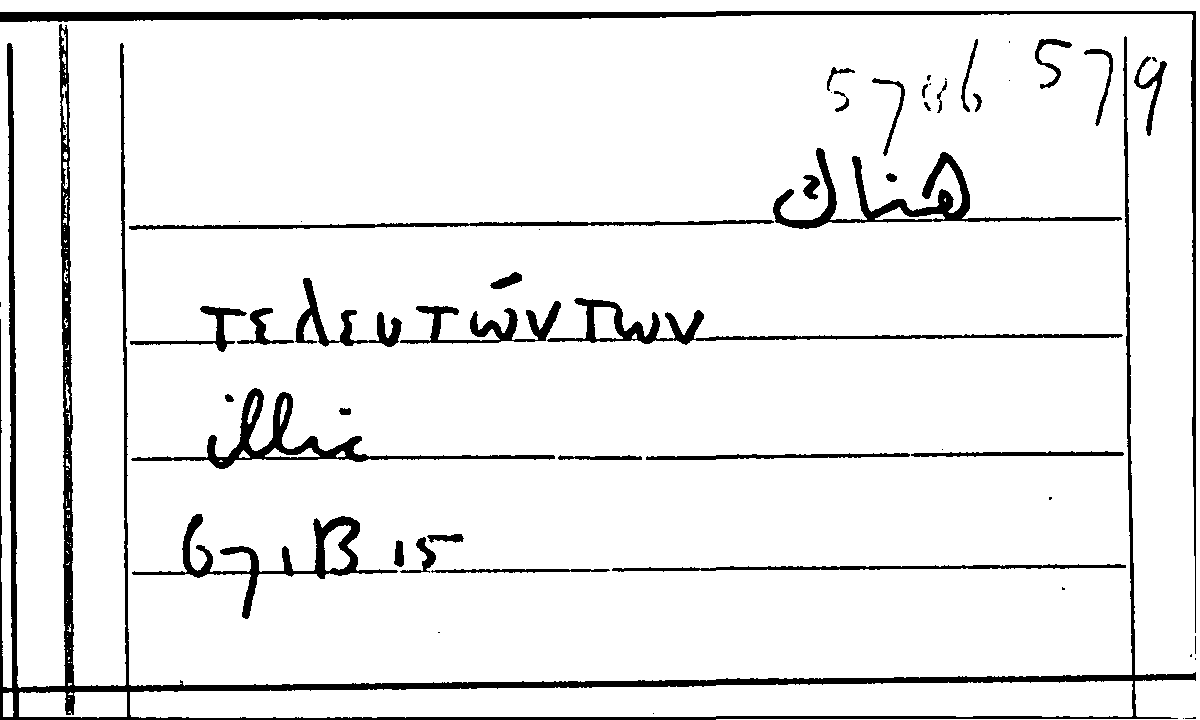 5786 579
هناك
τελευτώντων
illic
671B15